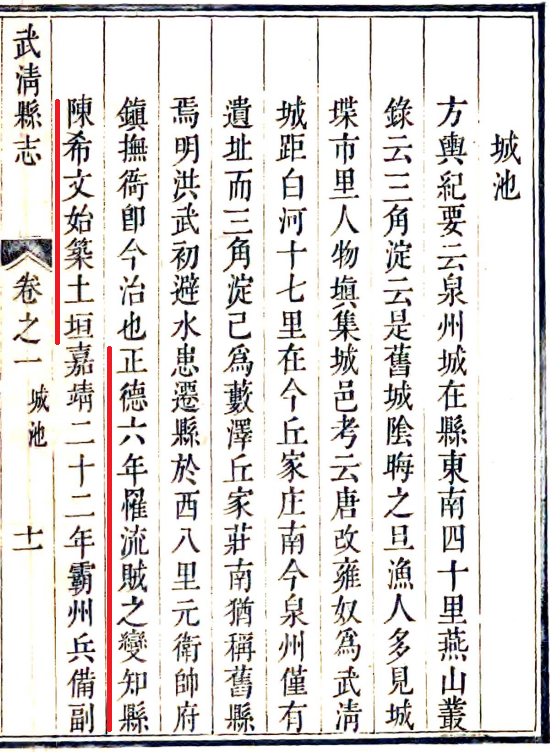 城池
方輿紀要云泉州城在縣東南四十里燕山叢
錄云三角淀云是舊城陰晦之旦漁人多見城
堞市里人物塡集城邑考云唐改雍奴為武清
城距白河十七里在今丘家庄南今泉州僅有
遺址而三角淀己為藪澤丘家莊南猶稱舊縣
焉明洪武初避水患遷縣於西八里元衛帥府
鎮撫衙卽今治也正德六年罹流賊之變知縣
陳希文始築土垣嘉靖二十二年霸州兵備副
武清縣志 卷之一 城池 十一